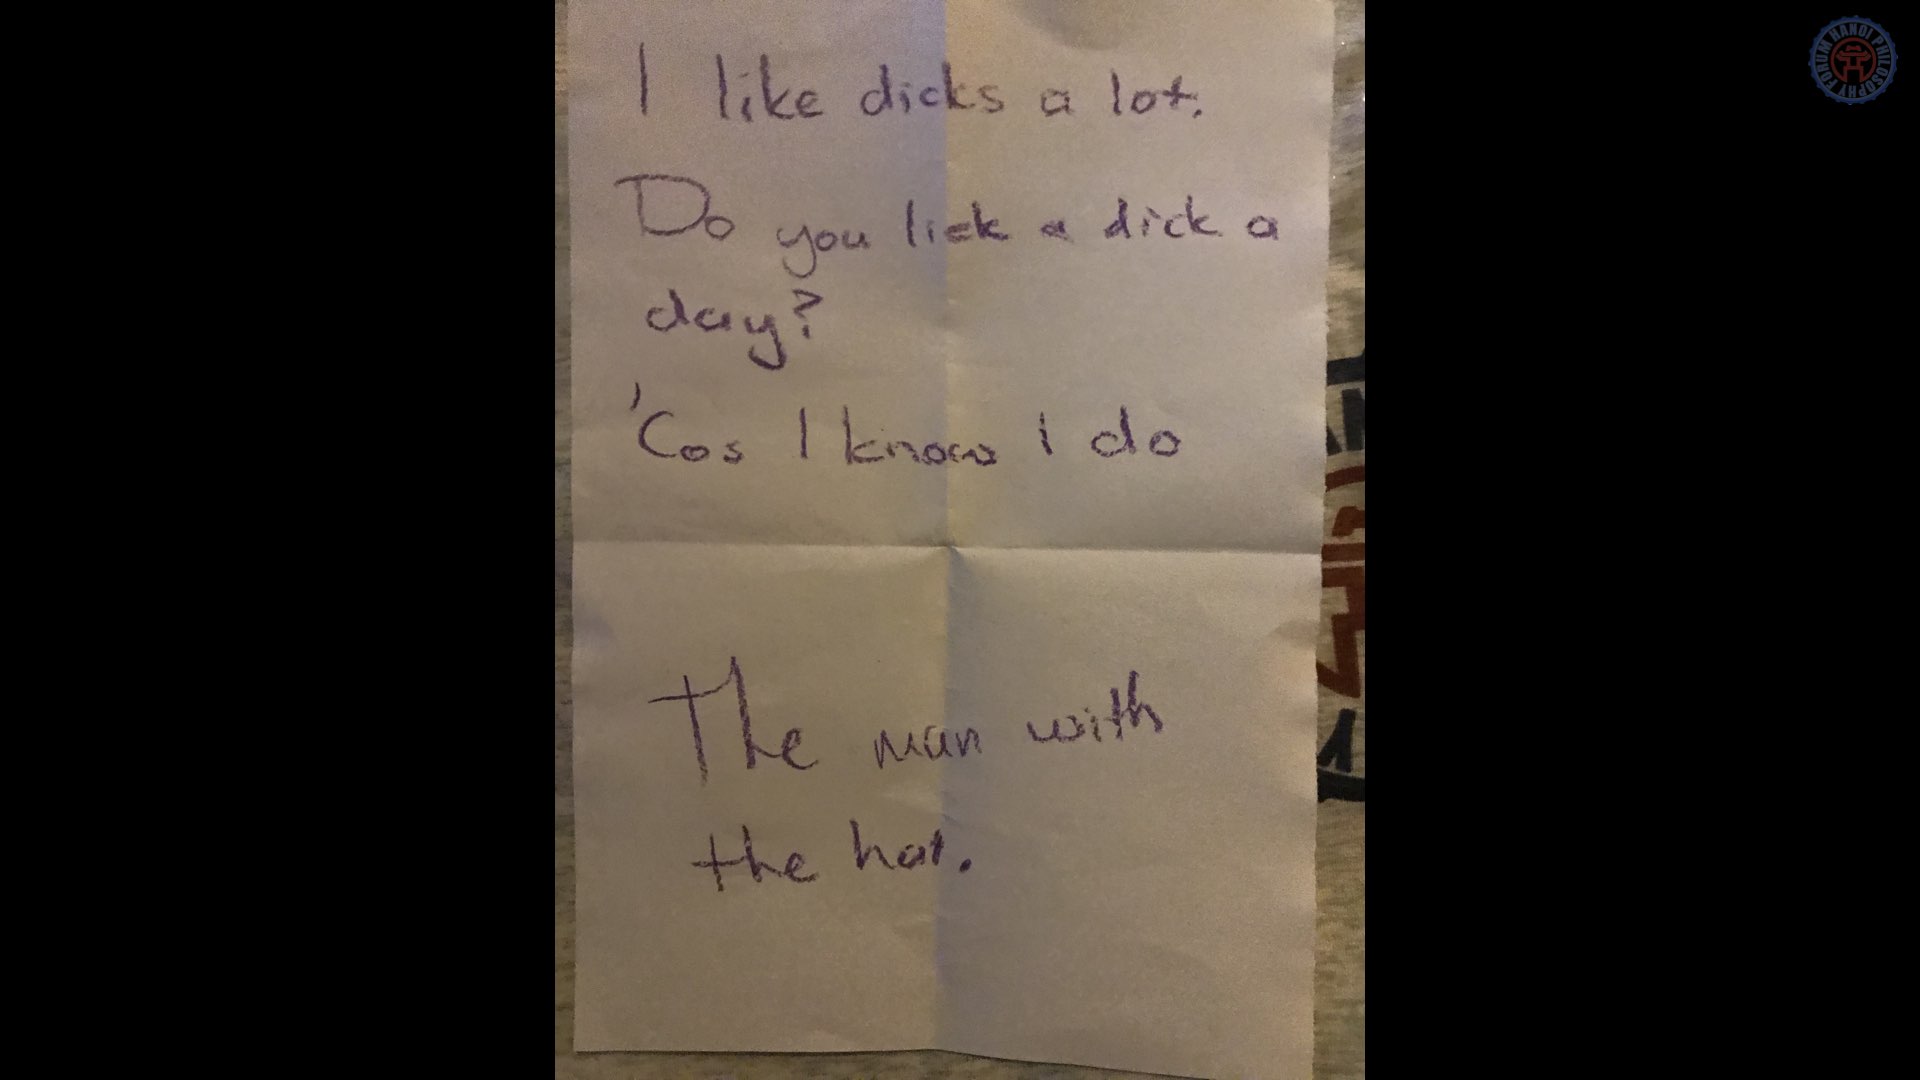 I like dicks a lot.
Do you lick a dick a
day?
'Cos I know I do
The man with
the hat.
FORUM HANOI PHILOSOPHY